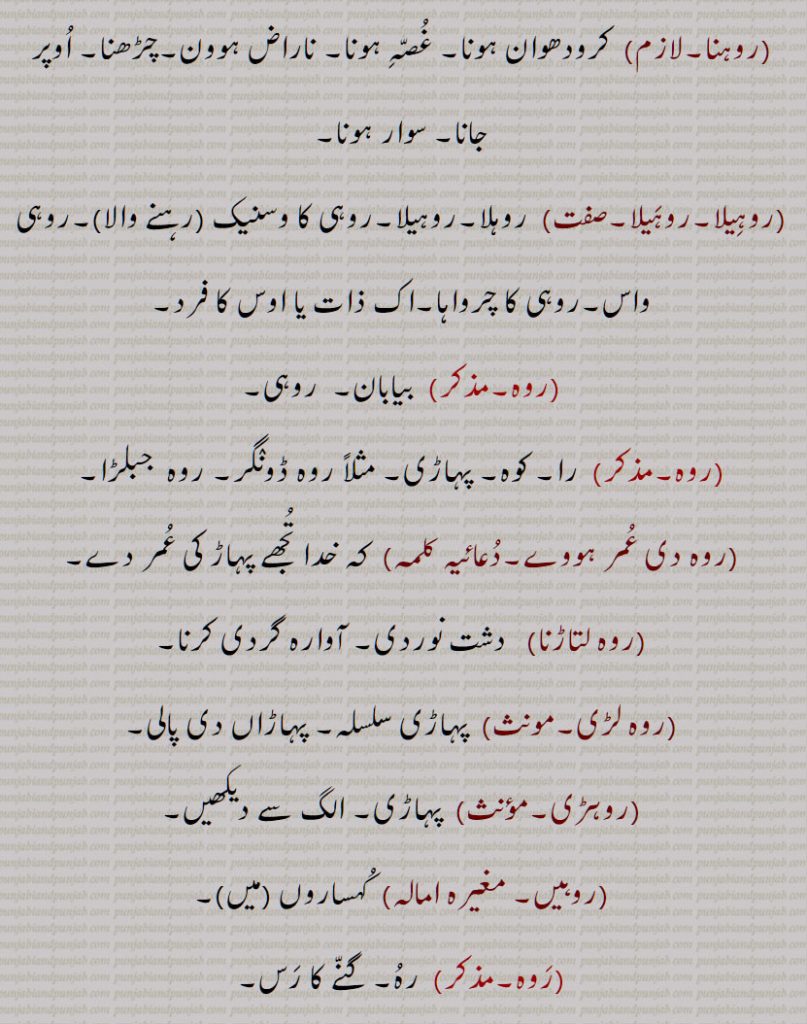 (روہنا۔لازم) کرودھوان ہونا۔ غُصّہِ ہونا۔ ناراض ہوون۔چڑھنا۔ اُوپر
جانا۔ سوار ہونا۔
(روہِیلا۔روہَیلا۔صفت) روہلا۔روہیلا۔روہی کا وسنیک (رہنے والا)۔روہی
واس۔روہی کا چرواہا۔اک ذات یا اوس کا فرد۔
(روہ۔مذکر) بیابان۔ روہی۔
(روہ۔مذکر) را۔ کوہ۔ پہاڑی۔ مثلاً روہ ڈونگر۔ روہ جبلڑا۔
(روہ دی عُمر ہووے۔دُعائیہ کلمہ) کہ خدا تُجھے پہاڑ کی عُمر دے۔
(روہ لتاڑنا) دشت نوردی۔ آوارہ گردی کرنا۔
(روہ لڑی۔مونث) پہاڑی سلسلہ۔ پہاڑاں دی پالی۔
(روہڑی۔مؤنث) پہاڑی۔ الگ سے دیکھیں۔
(روہیں۔ مغیرہ امالہ) کُہساروں (میں)۔
(رَوہ۔مذکر) رہُ۔ گنّے کا رَس۔
punjabiandpunjab.com